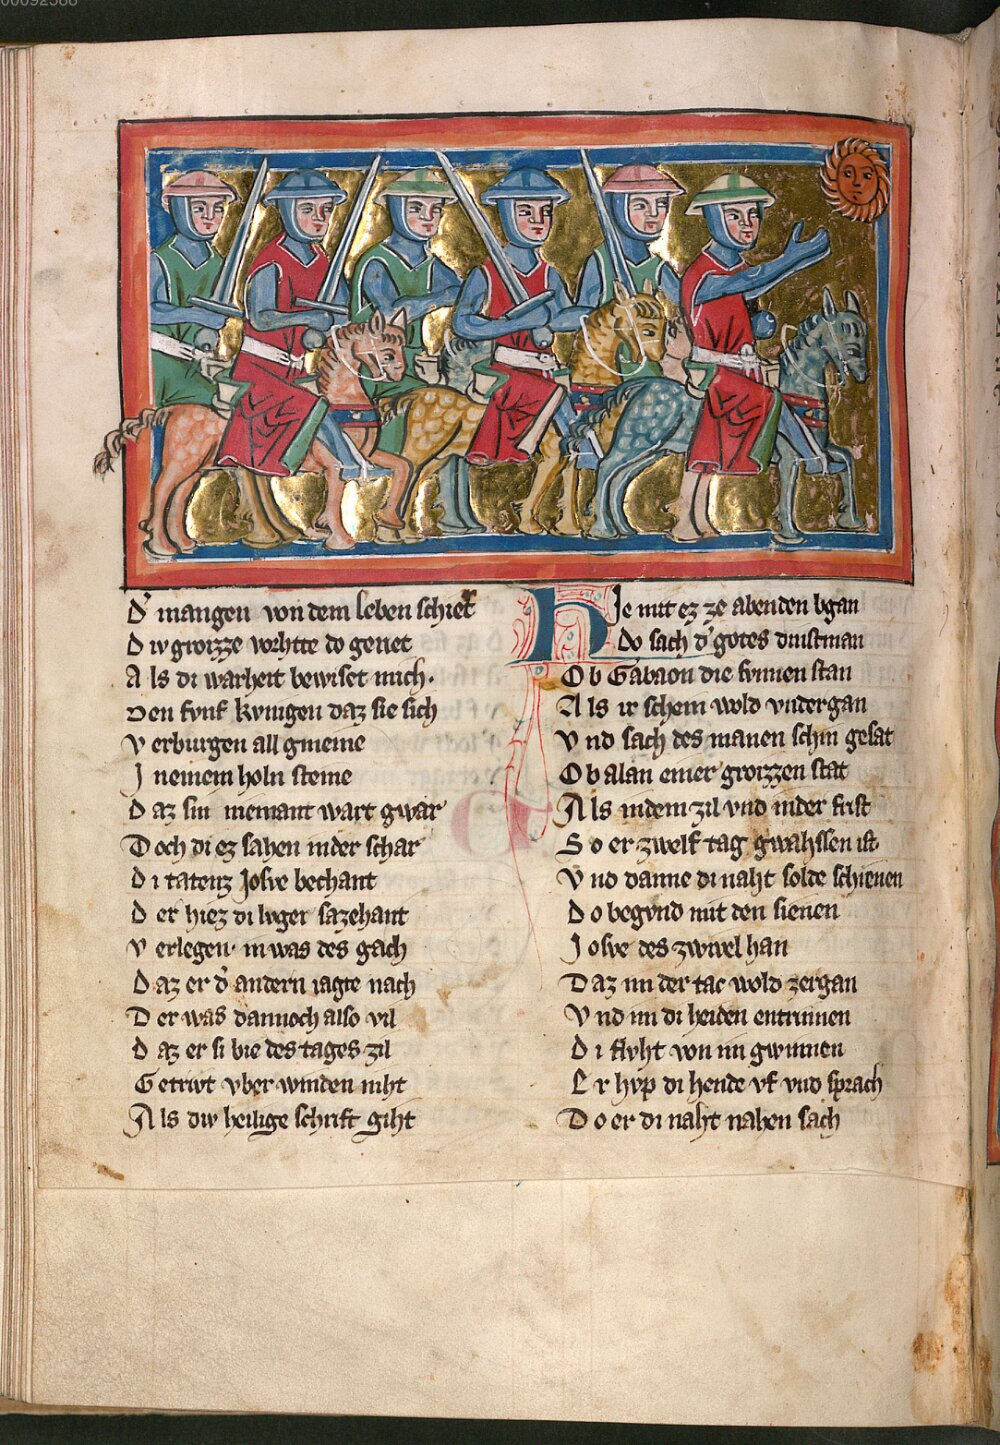 00092568
D' mangen von dem leben schiet
Div groizze vorhtte do geriet
Als di warheit bewiset mich·
Den fvnf kvnigen daz sie sich
verburgen all gmeine
In einem holn steine
Daz sin niemant wart gwar
Doch di ez sahen in der schar
Di tatenz Josve bechant
Der hiez di luger sazehant
verlegen· in was des gach
Daz er d' andern iagte nach
Der was dannoch also vil
Daz er si bie des tages zil
Getrivt vber winden niht
Als div heilige schrift giht
Hie mit ez ze abenden bgan
Do sach d' gotes dinstman
Ob Gabaon die svnnen stan
Als ir schein wold vndergan
Vnd sach des manen schin gesat
Ob alan einer groizzen stat
Als in dem zil vnd in der frist
So er zwelf tag gwahssen ist
Vnd danne di naht solde schienen
Do begvnd mit den sienen
Josve des zwivel han
Daz im der tac wold zergan
Vnd im di heiden entrinnen
Di flvht von im gwinnen
Er hvp di hende vf vnd sprach
Do er di naht nahen sach